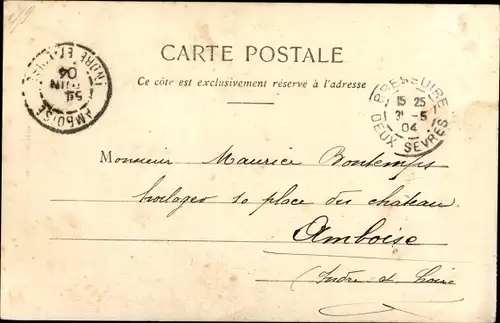 CARTE POSTALE
Ce côté est exclusivement réservé à l'adresse
AMBOISE
JUIN
04
INDRE-ET-LOIRE
BRESSUIRE
15 25
31 -5
04
DEUX-SÈVRES
Monsieur Maurice Bontemps
horloger 10 place du château
Amboise
(Indre et Loire